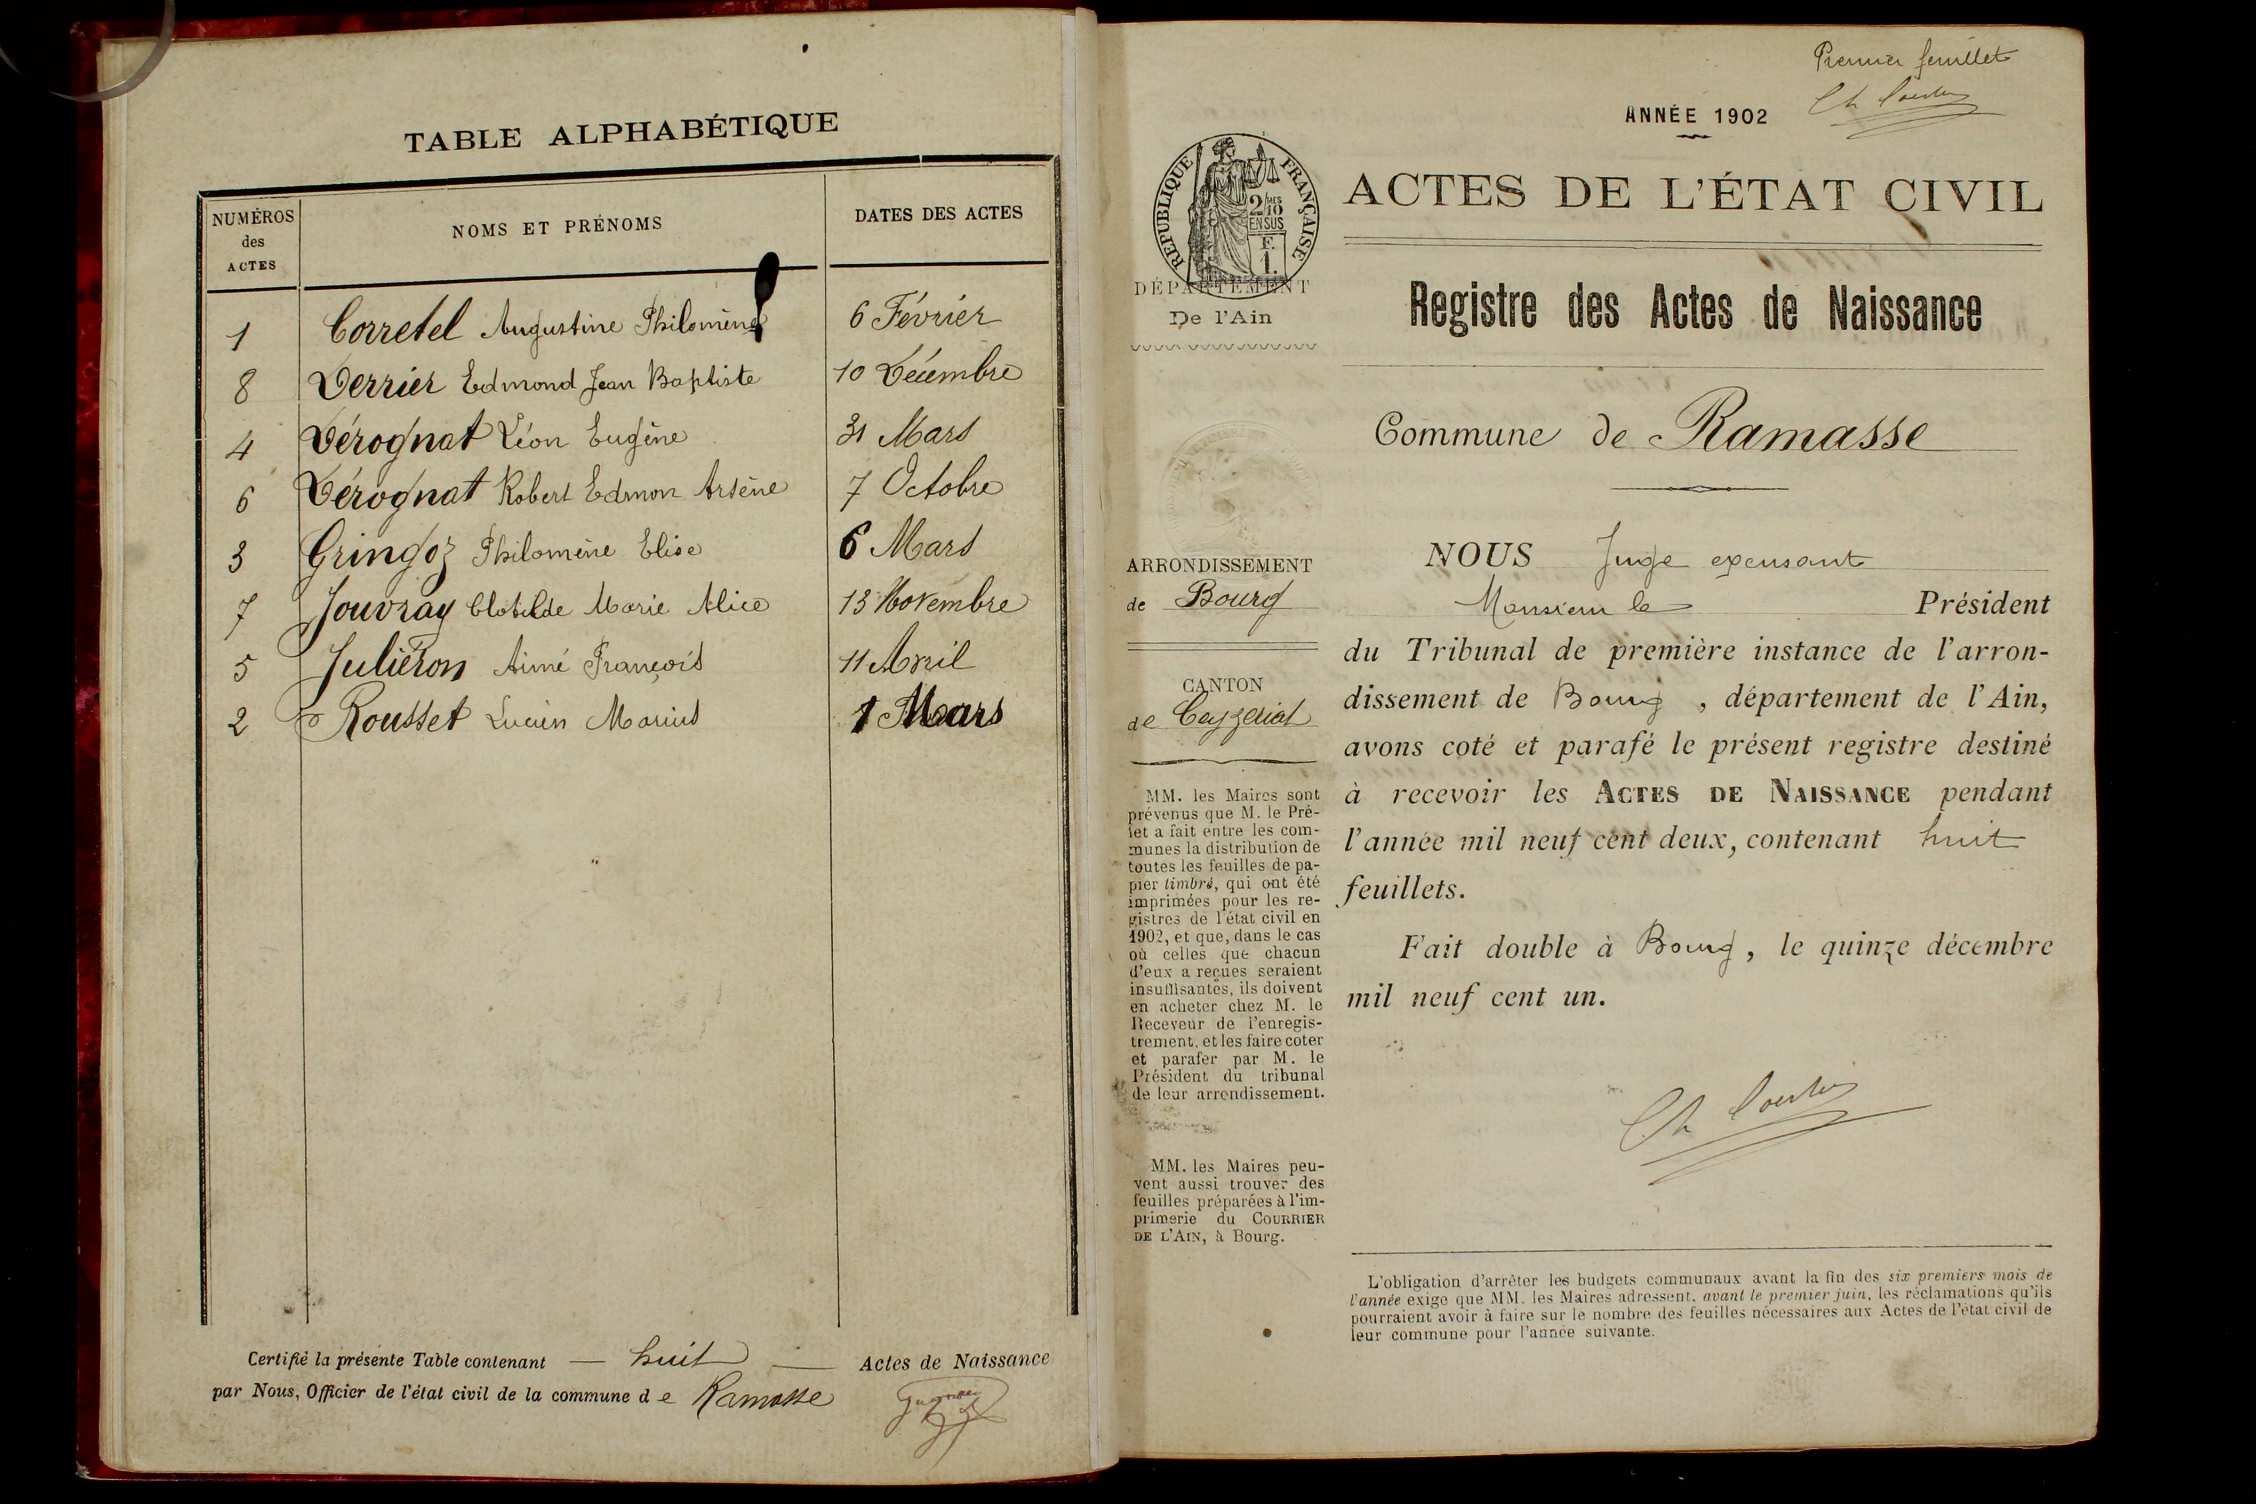 TABLE ALPHABÉTIQUE
NUMÉROS des ACTES NOMS ET PRÉNOMS DATES DES ACTES
1 Corretel Augustine Philomène 6 Février
8 Verrier Edmond Jean Baptiste 10 Décembre
4 Vérognat Léon Eugène 31 Mars
6 Vérognat Robert Edmon Arsène 7 Octobre
3 Gringoz Philomène Elise 6 Mars
7 Jouvray Clotilde Marie Alice 13 Novembre
5 Juliéron Aimé François 11 Avril
2 Rousset Lucien Marius 1 Mars
Certifié la présente Table contenant — huit — Actes de Naissance
par Nous, Officier de l'état civil de la commune de Ramasse
Premier feuillet
ANNÉE 1902
RÉPUBLIQUE FRANÇAISE
2/10 EN SUS
F. 1.
DÉPARTEMENT
De l'Ain
ARRONDISSEMENT
de Bourg
CANTON
de Ceyzeriat
MM. les Maires sont
prévenus que M. le Pré-
fet a fait entre les com-
munes la distribution de
toutes les feuilles de pa-
pier timbré, qui ont été
imprimées pour les re-
gistres de l'état civil en
1902, et que, dans le cas
où celles que chacun
d'eux a reçues seraient
insuffisantes, ils doivent
en acheter chez M. le
Receveur de l'enregis-
trement, et les faire coter
et parafer par M. le
Président du tribunal
de leur arrondissement.
MM. les Maires peu-
vent aussi trouver des
feuilles préparées à l'im-
primerie du COURRIER
DE L'AIN, à Bourg.
ACTES DE L'ÉTAT CIVIL
Registre des Actes de Naissance
Commune de Ramasse
NOUS Juge
Monsieur le Président
du Tribunal de première instance de l'arron-
dissement de Bourg, département de l'Ain,
avons coté et parafé le présent registre destiné
à recevoir les ACTES DE NAISSANCE pendant
l'année mil neuf cent deux, contenant huit
feuillets.
Fait double à Bourg, le quinze décembre
mil neuf cent un.
L'obligation d'arrêter les budgets communaux avant la fin des six premiers mois de
l'année exige que MM. les Maires adressent, avant le premier juin, les réclamations qu'ils
pourraient avoir à faire sur le nombre des feuilles nécessaires aux Actes de l'état civil de
leur commune pour l'année suivante.